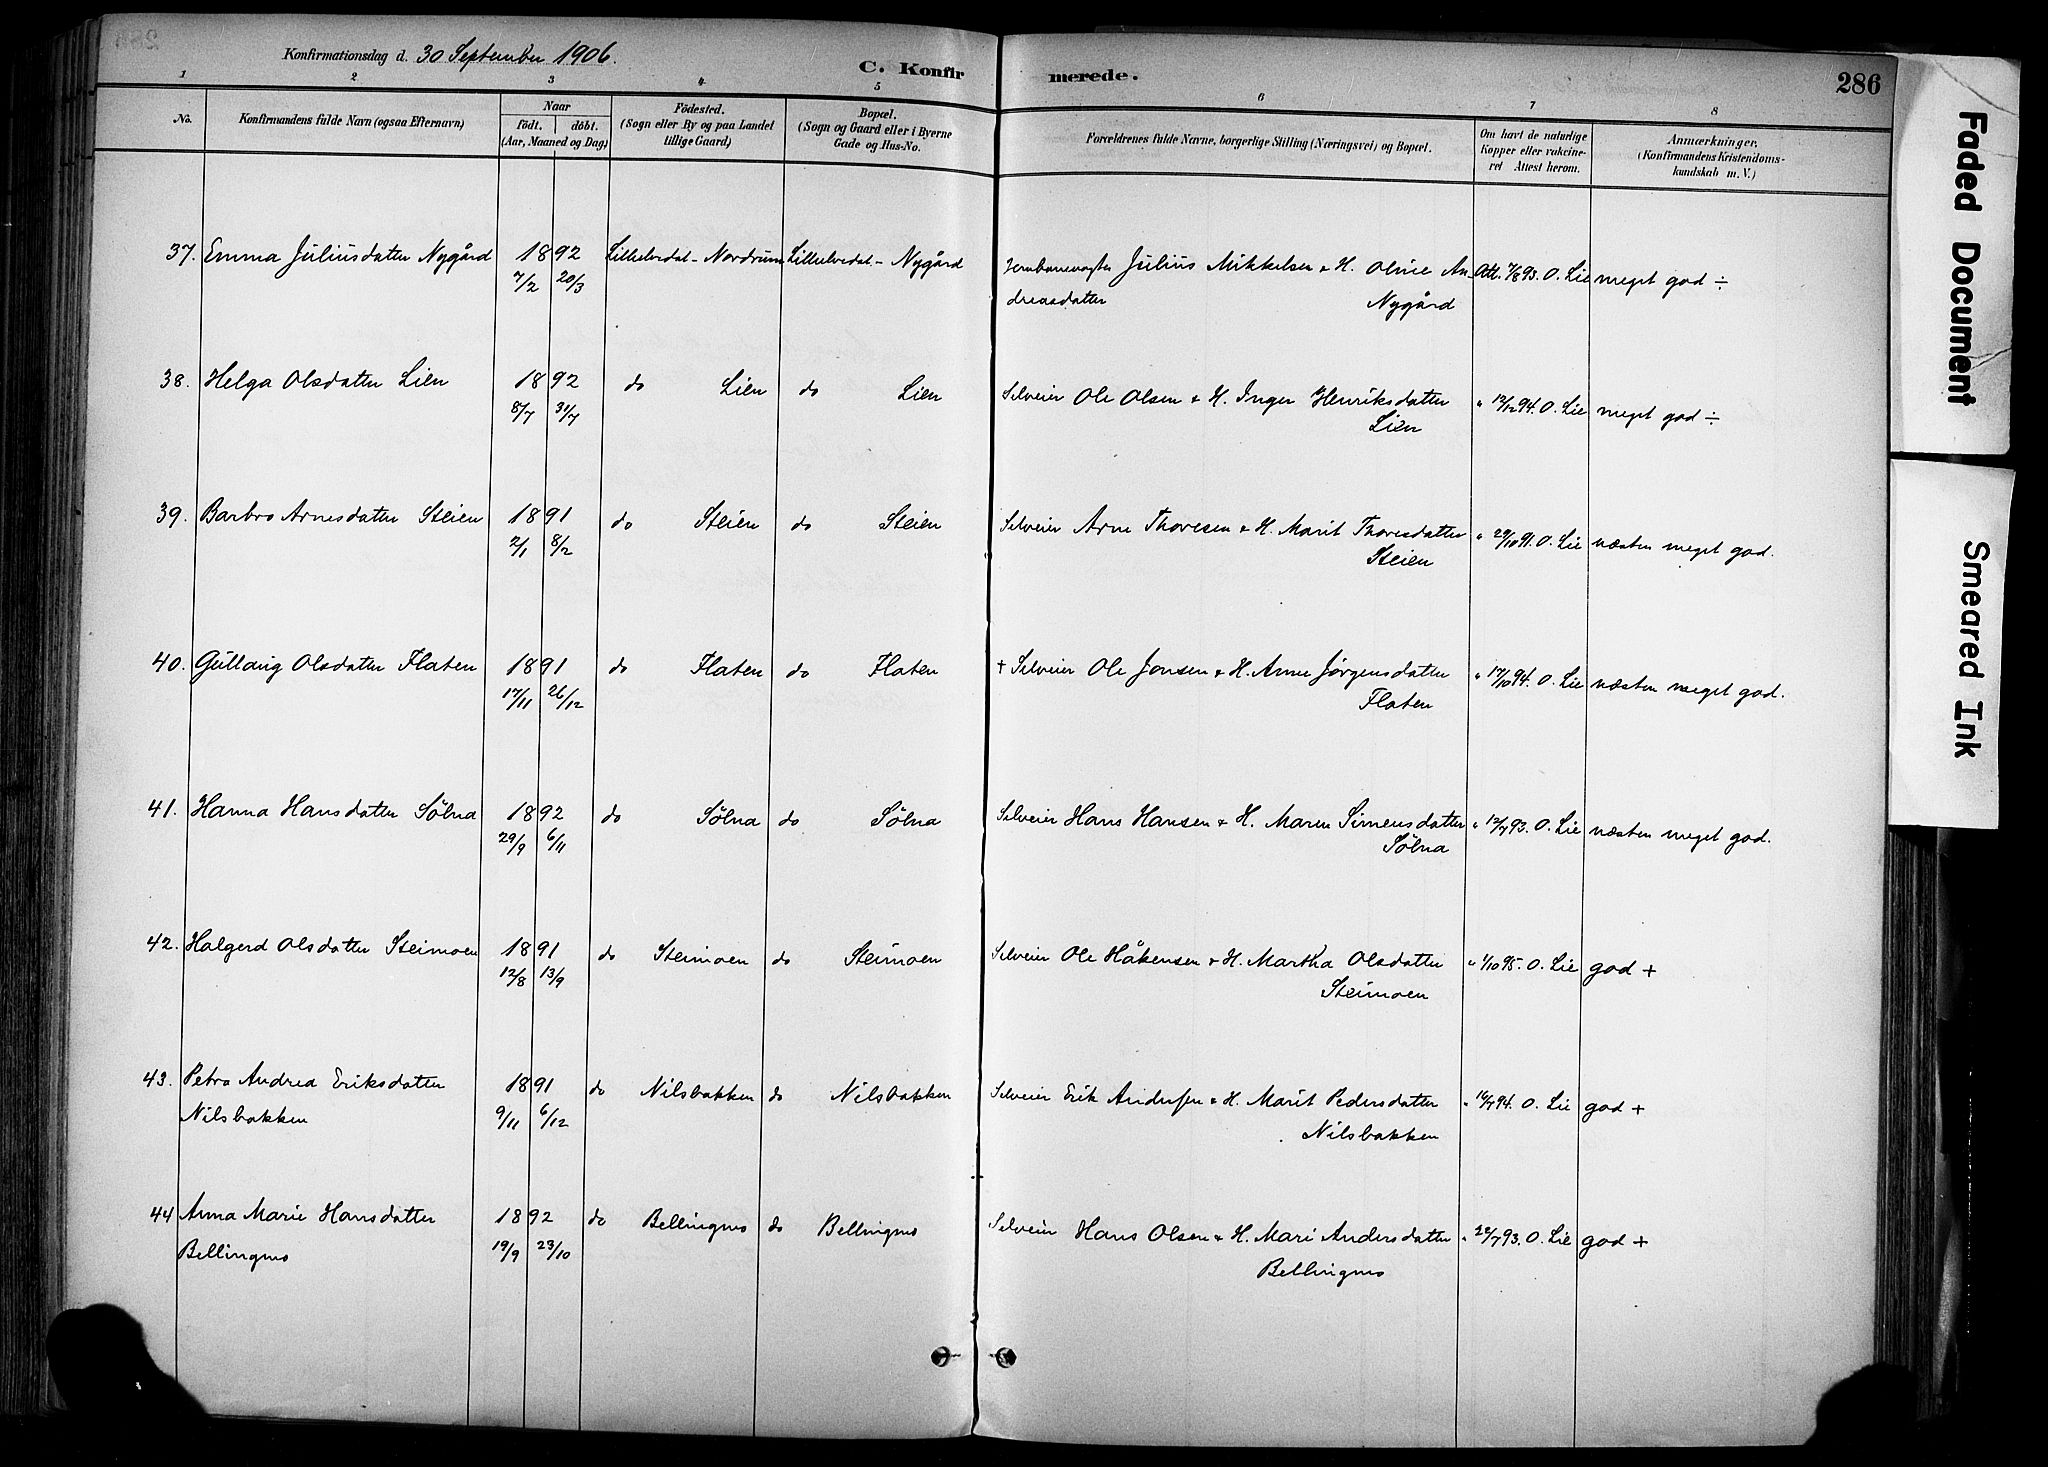 Konfirmationsdag d. 30 September 1906.
C. Konfirmerede.
286
1 2 3 4 5 6 7 8
No.
Konfirmandens fulde Navn (ogsaa Efternavn)
Naar
födt. döbt.
(Aar, Maaned og Dag)
Födested.
(Sogn eller By og paa Landet
tillige Gaard)
Bopæl.
(Sogn og Gaard eller i Byerne
Gade og Hus-No.
Forældrenes fulde Navne, borgerlige Stilling (Næringsvei) og Bopæl.
Om havt de naturlige
Kopper eller vakcine-
ret Attest herom.
Anmærkninger.
(Konfirmandens Kristendoms-
kundskab m. V.)
37. Emma Juliusdatter Nygård 1892 Lilleelvedal - Nordrum Lilleelvedal - Nygård Jernbanevogter Julius Mikkelsen & H. Oline An- Att. 7/8 93. O. Lie meget god ÷
7/2 20/3 dreasdatter Nygård
38. Helga Olsdatter Lien 1892 do Lien do Lien Selveier Ole Olsen & H. Inger Henriksdatter " 12/12 94. O. Lie meget god ÷
8/7 31/7 Lien
39. Barbro Arnesdatter Steien 1891 do Steien do Steien Selveier Arne Thoresen & H. Marit Thoresdatter " 29/10 91. O. Lie næsten meget god.
2/1 8/2 Steien
40. Gullaug Olsdatter Flaten 1891 do Flaten do Flaten + Selveier Ole Jonsen & H. Anne Jørgensdatter " 17/10 94. O. Lie næsten meget god.
17/11 26/12 Flaten
41. Hanna Hansdatter Sølna 1892 do Sølna do Sølna Selveier Hans Hansen & H. Maren Simensdatter " 12/7 93. O. Lie næsten meget god.
29/9 6/11 Sølna
42. Halgerd Olsdatter Steimoen 1891 do Steimoen do Steimoen Selveier Ole Håkensen & H. Martha Olsdatter " 1/10 95. O. Lie god +
12/8 13/9 Steimoen
43. Petra Andrea Eriksdatter 1891 do Nilsbakken do Nilsbakken Selveier Erik Andersen & H. Marit Pedersdatter " 16/7 94. O. Lie god +
Nilsbakken 9/11 6/12 Nilsbakken
44 Anna Marie Hansdatter 1892 do Bellingmo do Bellingmo Selveier Hans Olsen & H. Mari Andersdatter " 22/7 93. O. Lie god +
Bellingmo 19/9 23/10 Bellingmo
Faded Document
Smeared Ink